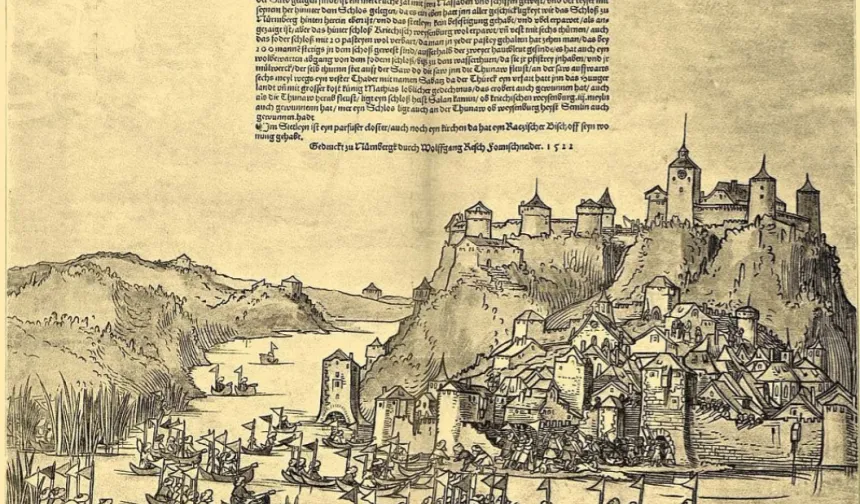 septen her hinuter das Schloß gelegen/da es ein eben hatt jnn aller geschicligkeyt wie das Schloß zu
Nürmberg hinten herein eben ist/vnd das stetleyn kein befestigung gehabt/vnd vbel erpawet/als an-
gezaigt ist/aber das hinter schloß Kriechisch weysenburg wol erpawet/vñ vest mit sechs thürnen/auch
das foder schloß mit 20 pasteyen wol verbart/da man in yeder pastey gehalten hat zehen man/das bey
200 mannē stetigs in dem schoß gewest sind/ausserhalb der zweyer haubtleut gesinde/es hat auch ein
wolberwarten abgang von dem fodern schloß/biß zu dem wasserthurn/da sie jr pfistrey jnhaben/vnd jr
mülwerck/der selb thurnn stet auff der Saw do die saw jnn die Thunaw fleust/an der saw auffwarts
sechs meyl wegs eyn vester Thaber mit namen Sabatz da der Türck eyn vast hatt jnn das Hunger
landt vñ mit grosser kost künig Mathias loblicher gedechtnus/das erobert auch gewunnen hat/auch
als die Thunaw herab fleust/ligt eyn schloß heist Salankamin/ob kriechischen weysenburg .iij. meyln
auch gewunnenn hat/mer eyn Schlos ligt auch an der Thunaw ob weysenburg heyst Semün auch
gewunnen.hadt
Im Stetleyn ist eyn parfuser closter/auch noch eyn kirchen da hat eyn Raczischer Bischoff seyn wo
nung gehabt.
Gedruckt zu Nürnbergk durch Wolffgang Resch Formschneider. 1522